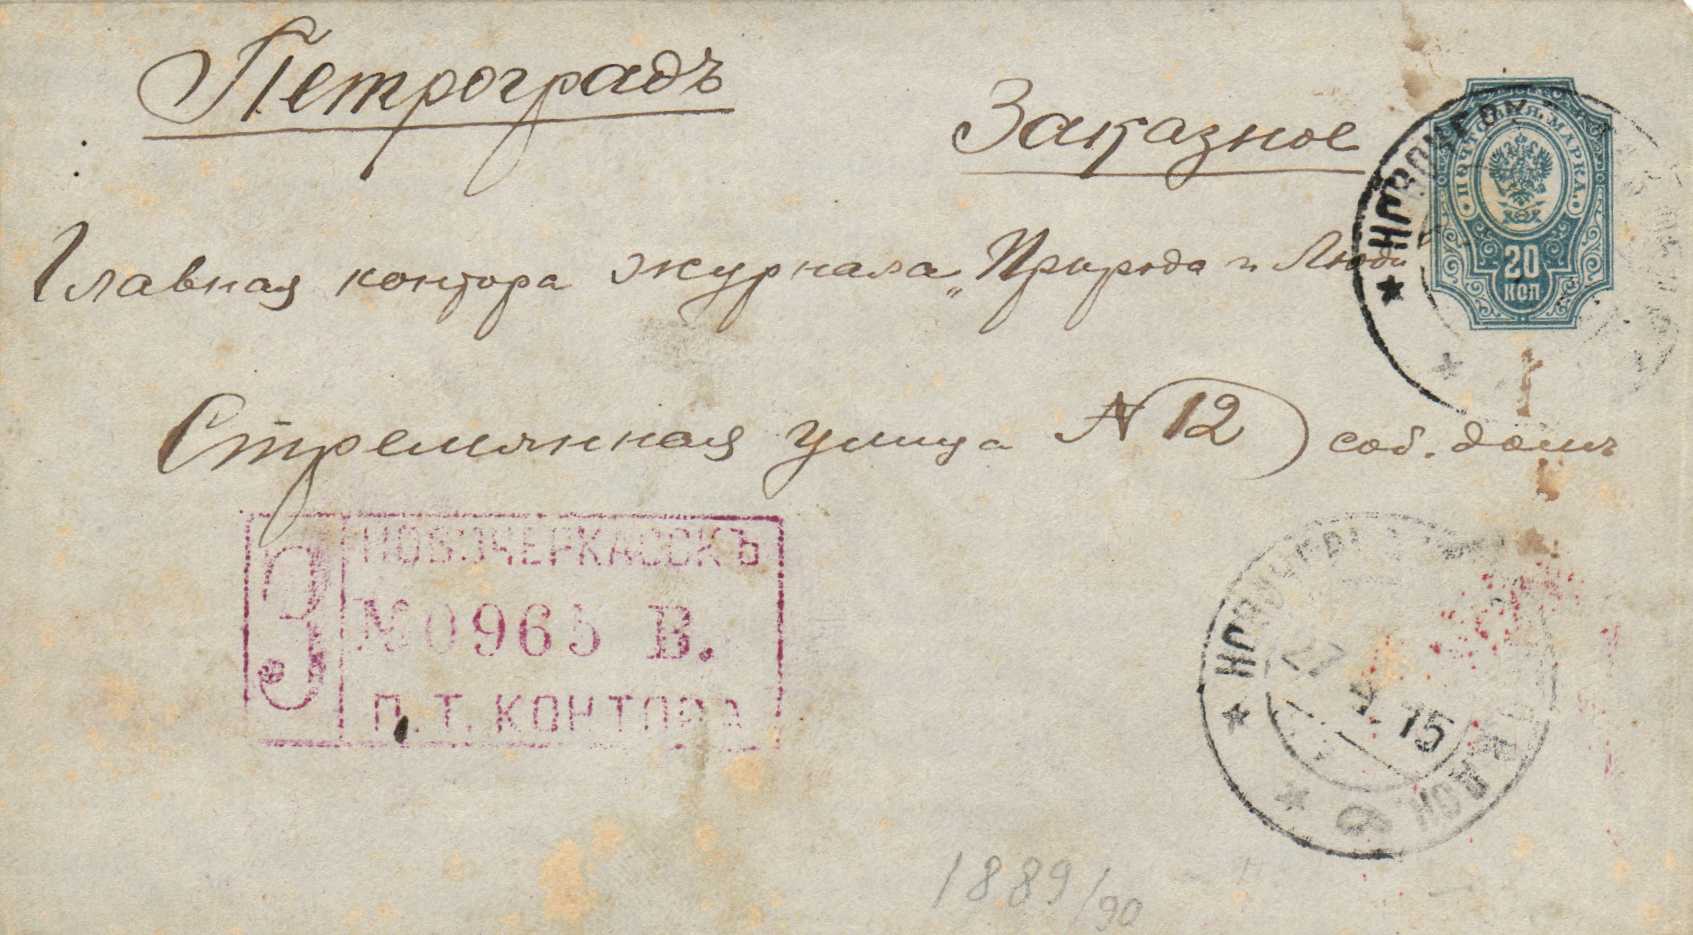 Петроградъ
Заказное
ПОЧТОВАЯ МАРКА
20
КОП
Главная контора журнала „Природа и Люди
Стремянная улица № 12) соб. домъ
З
НОВОЧЕРКАССКЪ
№ 0965 В.
П. Т. КОНТОРА
27 4 15
1889/90